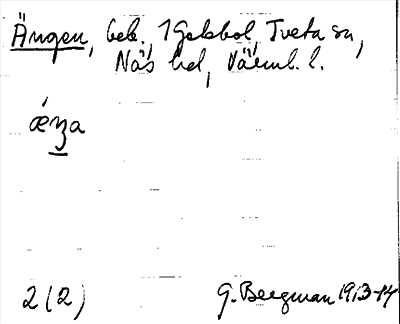 Ängen, beb., 1 Golsbol, Tveta sn,
Näs hd, Värml. l.
ǽŋa
2(2) G. Bergman 1913-14